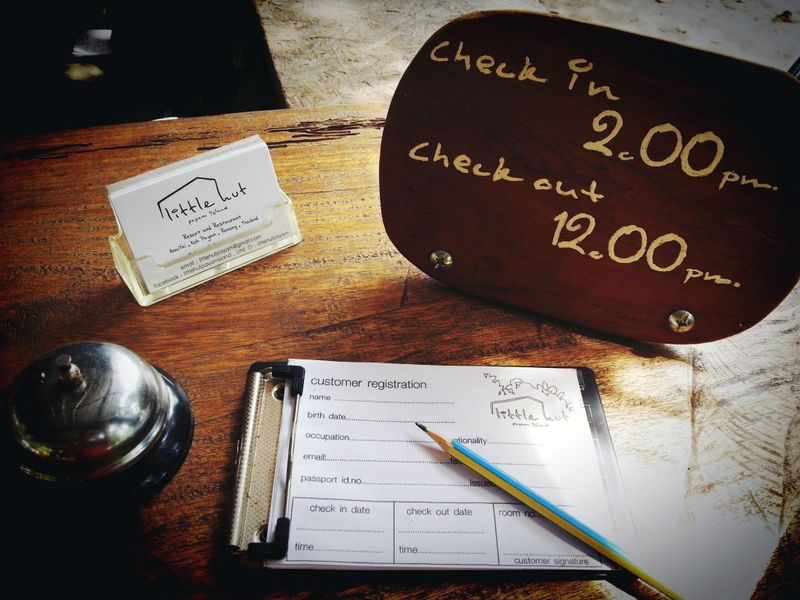 Check in
2.00 pm.
Check out
12.00 pm.
little hut
payam Island
Resort and Restaurant
Aow Yai, Koh Payam, Ranong, Thailand
email : littlehutpayam@gmail.com
facebook : littlehutpayamisland : LINE ID : littlehutpayam
customer registration
name
birth date
occupation
ationality
email:
passport id.no
issue
little hut
payam Island
check in date
check out date
room no.
time
time
customer signature